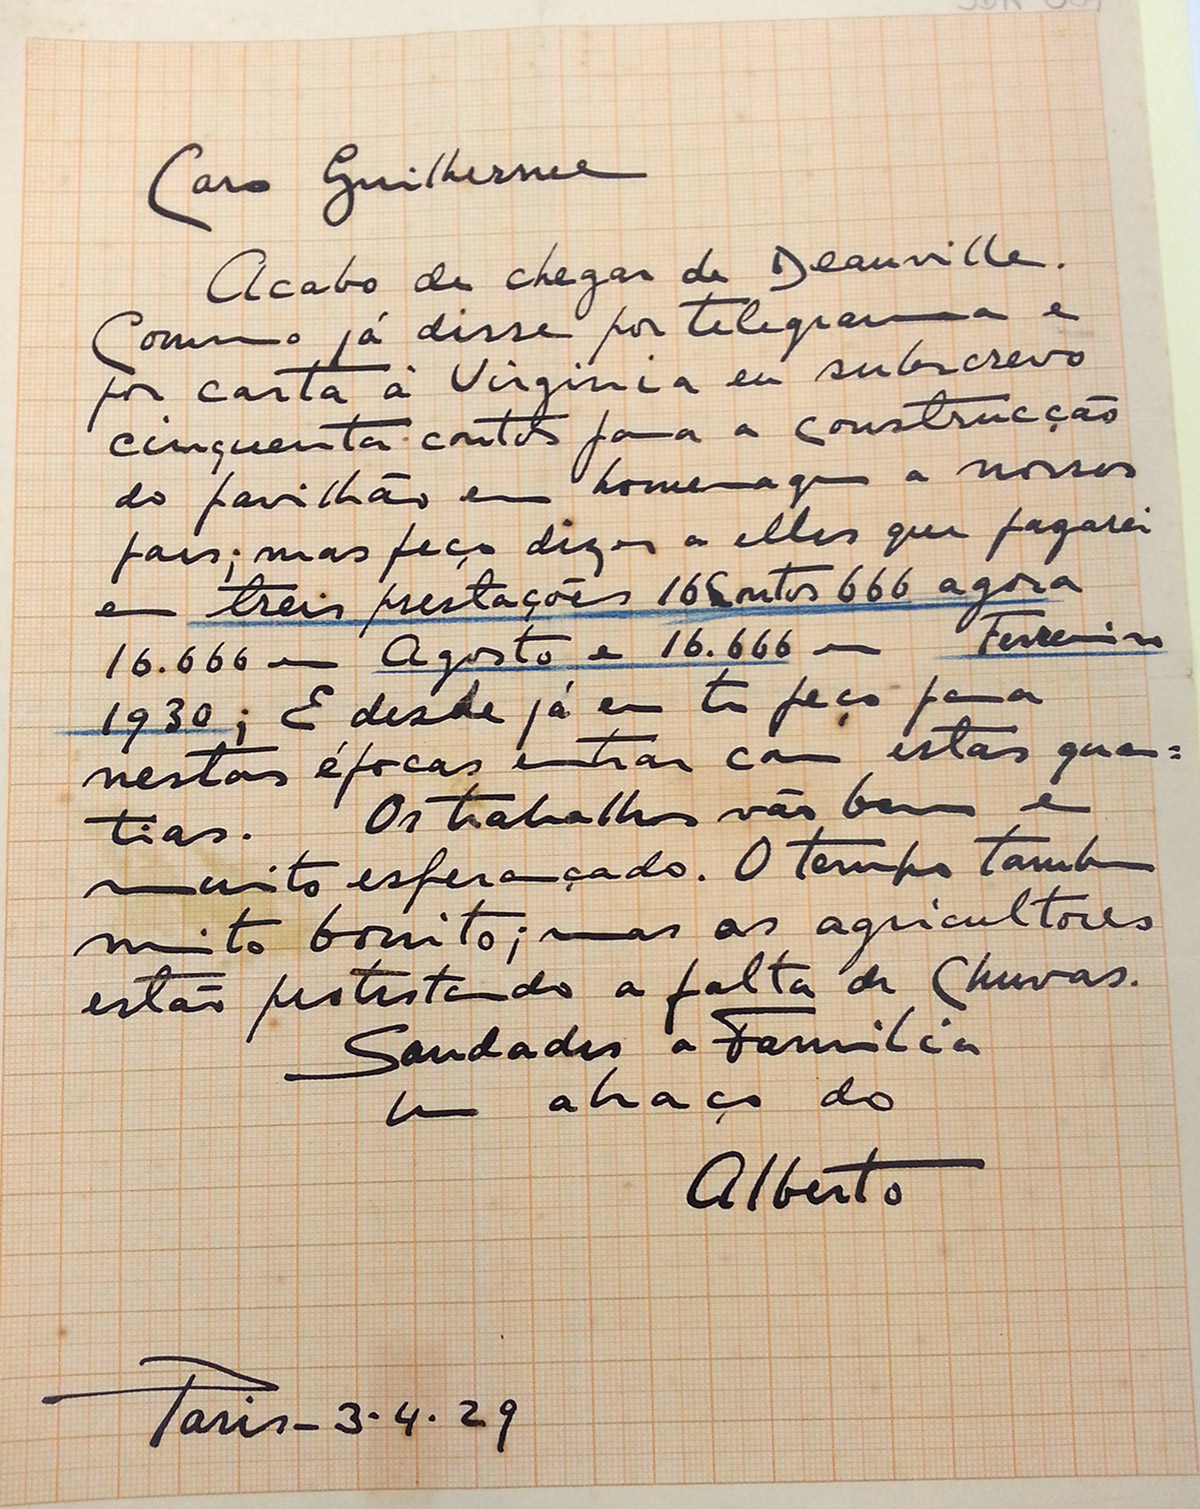 Caro Guilherme
Acabo de chegar de Deauville.
Commo já disse por telegramma e
por carta á Virginia eu subscrevo
cinquenta contos para a construcção
do pavilhão em homenagem a nossos
paes; mas peço dizer a elles que pagarei
em treis prestações 16Contos 666 agora
16.666 em Agosto e 16.666 em Fevereiro
1930; E desde já eu te peço para
nestas épocas entrar com estas quan=
tias. Os trabalhos vão bem e
muito esperançado. O tempo tambem
muito bonito; mas os agricultores
estão protestando a falta de Chuvas.
Saudades a Familia
Um abraço do
Alberto
Paris - 3.4.29